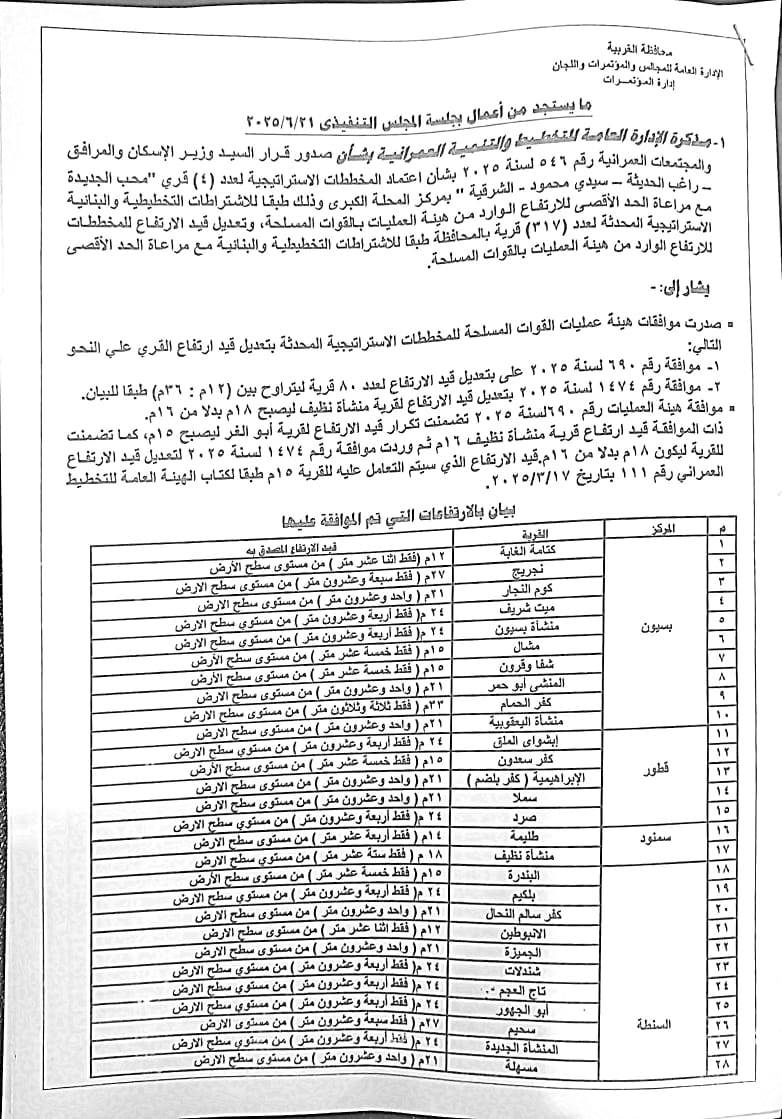 محافظة الغربية
الإدارة العامة للمجالس والمؤتمرات واللجان
إدارة المؤتمـرات
ما يستجد من أعمال بجلسة المجلس التنفيذى ٢٠٢٥/٦/٢١
١- مذكرة الإدارة العامة للتخطيط والتنمية العمرانية بشأن صدور قرار السيد وزير الإسكان والمرافق
والمجتمعات العمرانية رقم ٥٤٦ لسنة ٢٠٢٥ بشأن اعتماد المخططات الاستراتيجية لعدد (٤) قري "محب الجديدة
– راغب الحديثة – سيدي محمود - الشرقية " بمركز المحلة الكبرى وذلك طبقا للاشتراطات التخطيطية والبنائية
مع مراعاة الحد الأقصى للارتفاع الوارد من هيئة العمليات بالقوات المسلحة، وتعديل قيد الارتفاع للمخططات
الاستراتيجية المحدثة لعدد (٣١٧) قرية بالمحافظة طبقا للاشتراطات التخطيطية والبنائية مع مراعاة الحد الأقصى
للارتفاع الوارد من هيئة العمليات بالقوات المسلحة.
يشار إلى: -
▪ صدرت موافقات هيئة عمليات القوات المسلحة للمخططات الاستراتيجية المحدثة بتعديل قيد ارتفاع القري علي النحو
التالي:
١- موافقة رقم ٦٩٠ لسنة ٢٠٢٥ على بتعديل قيد الارتفاع لعدد ٨٠ قرية ليتراوح بين (١٢م : ٣٦م) طبقا للبيان.
٢- موافقة رقم ١٤٧٤ لسنة ٢٠٢٥ بتعديل قيد الارتفاع لقرية منشأة نظيف ليصبح ١٨م بدلا من ١٦م.
▪ موافقة هيئة العمليات رقم ٦٩٠لسنة ٢٠٢٥ تضمنت تكرار قيد الارتفاع لقرية أبو الغر ليصبح ١٥م، كما تضمنت
ذات الموافقة قيد ارتفاع قرية منشأة نظيف ١٦م ثم وردت موافقة رقم ١٤٧٤ لسنة ٢٠٢٥ لتعديل قيد الارتفاع
للقرية ليكون ١٨م بدلا من ١٦م.قيد الارتفاع الذي سيتم التعامل عليه للقرية ١٥م طبقا لكتاب الهيئة العامة للتخطيط
العمراني رقم ١١١ بتاريخ ٢٠٢٥/٣/١٧.
بيان بالارتفاعات التي تم الموافقة عليها
م المركز القرية قيد الارتفاع المصدق به
١ كتامة الغابة ١٢م (فقط اثنا عشر متر ) من مستوى سطح الأرض
٢ نجريج ٢٧م ( فقط سبعة وعشرون متر ) من مستوي سطح الارض
٣ كوم النجار ٢١م ( واحد وعشرون متر ) من مستوى سطح الارض
٤ ميت شريف ٢٤ م( فقط أربعة وعشرون متر ) من مستوي سطح الارض
٥ بسيون منشأة بسيون ٢٤ م( فقط أربعة وعشرون متر ) من مستوي سطح الارض
٦ مشال ١٥م ( فقط خمسة عشر متر ) من مستوى سطح الأرض
٧ شفا وقرون ١٥م ( فقط خمسة عشر متر ) من مستوى سطح الأرض
٨ المنشى أبو حمر ٢١م ( واحد وعشرون متر ) من مستوى سطح الارض
٩ كفر الحمام ٣٣م ( فقط ثلاثة وثلاثون متر ) من مستوى سطح الأرض
١٠ منشأة اليعقوبية ٢١م ( واحد وعشرون متر ) من مستوى سطح الارض
١١ إبشواى الملق ٢٤ م( فقط أربعة وعشرون متر ) من مستوي سطح الارض
١٢ كفر سعدون ١٥م ( فقط خمسة عشر متر ) من مستوى سطح الأرض
١٣ قطور الإبراهيمية ( كفر بلضم ) ٢١م ( واحد وعشرون متر ) من مستوى سطح الارض
١٤ سملا ٢١م ( واحد وعشرون متر ) من مستوى سطح الارض
١٥ صرد ٢٤ م( فقط أربعة وعشرون متر ) من مستوي سطح الارض
١٦ سمنود طليمة ١٤م ( فقط أربعة عشر متر ) من مستوى سطح الارض
١٧ منشأة نظيف ١٨ م ( فقط ستة عشر متر ) من مستوي سطح الارض
١٨ البندرة ١٥م ( فقط خمسة عشر متر ) من مستوى سطح الأرض
١٩ بلكيم ٢٤ م( فقط أربعة وعشرون متر ) من مستوي سطح الارض
٢٠ كفر سالم النحال ٢١م ( واحد وعشرون متر ) من مستوى سطح الارض
٢١ الانبوطين ١٢م ( فقط اثنا عشر متر ) من مستوى سطح الأرض
٢٢ الجميزة ٢١م ( واحد وعشرون متر ) من مستوى سطح الارض
٢٣ شندلات ٢٤ م( فقط أربعة وعشرون متر ) من مستوي سطح الارض
٢٤ تاج العجم ٢٤ م( فقط أربعة وعشرون متر ) من مستوي سطح الارض
٢٥ أبو الجهور ٢٤ م( فقط أربعة وعشرون متر ) من مستوي سطح الارض
٢٦ السنطة سحيم ٢٧م ( فقط سبعة وعشرون متر ) من مستوى سطح الارض
٢٧ المنشأة الجديدة ٢٤ م( فقط أربعة وعشرون متر ) من مستوي سطح الارض
٢٨ مسهلة ٢١م ( واحد وعشرون متر ) من مستوى سطح الارض